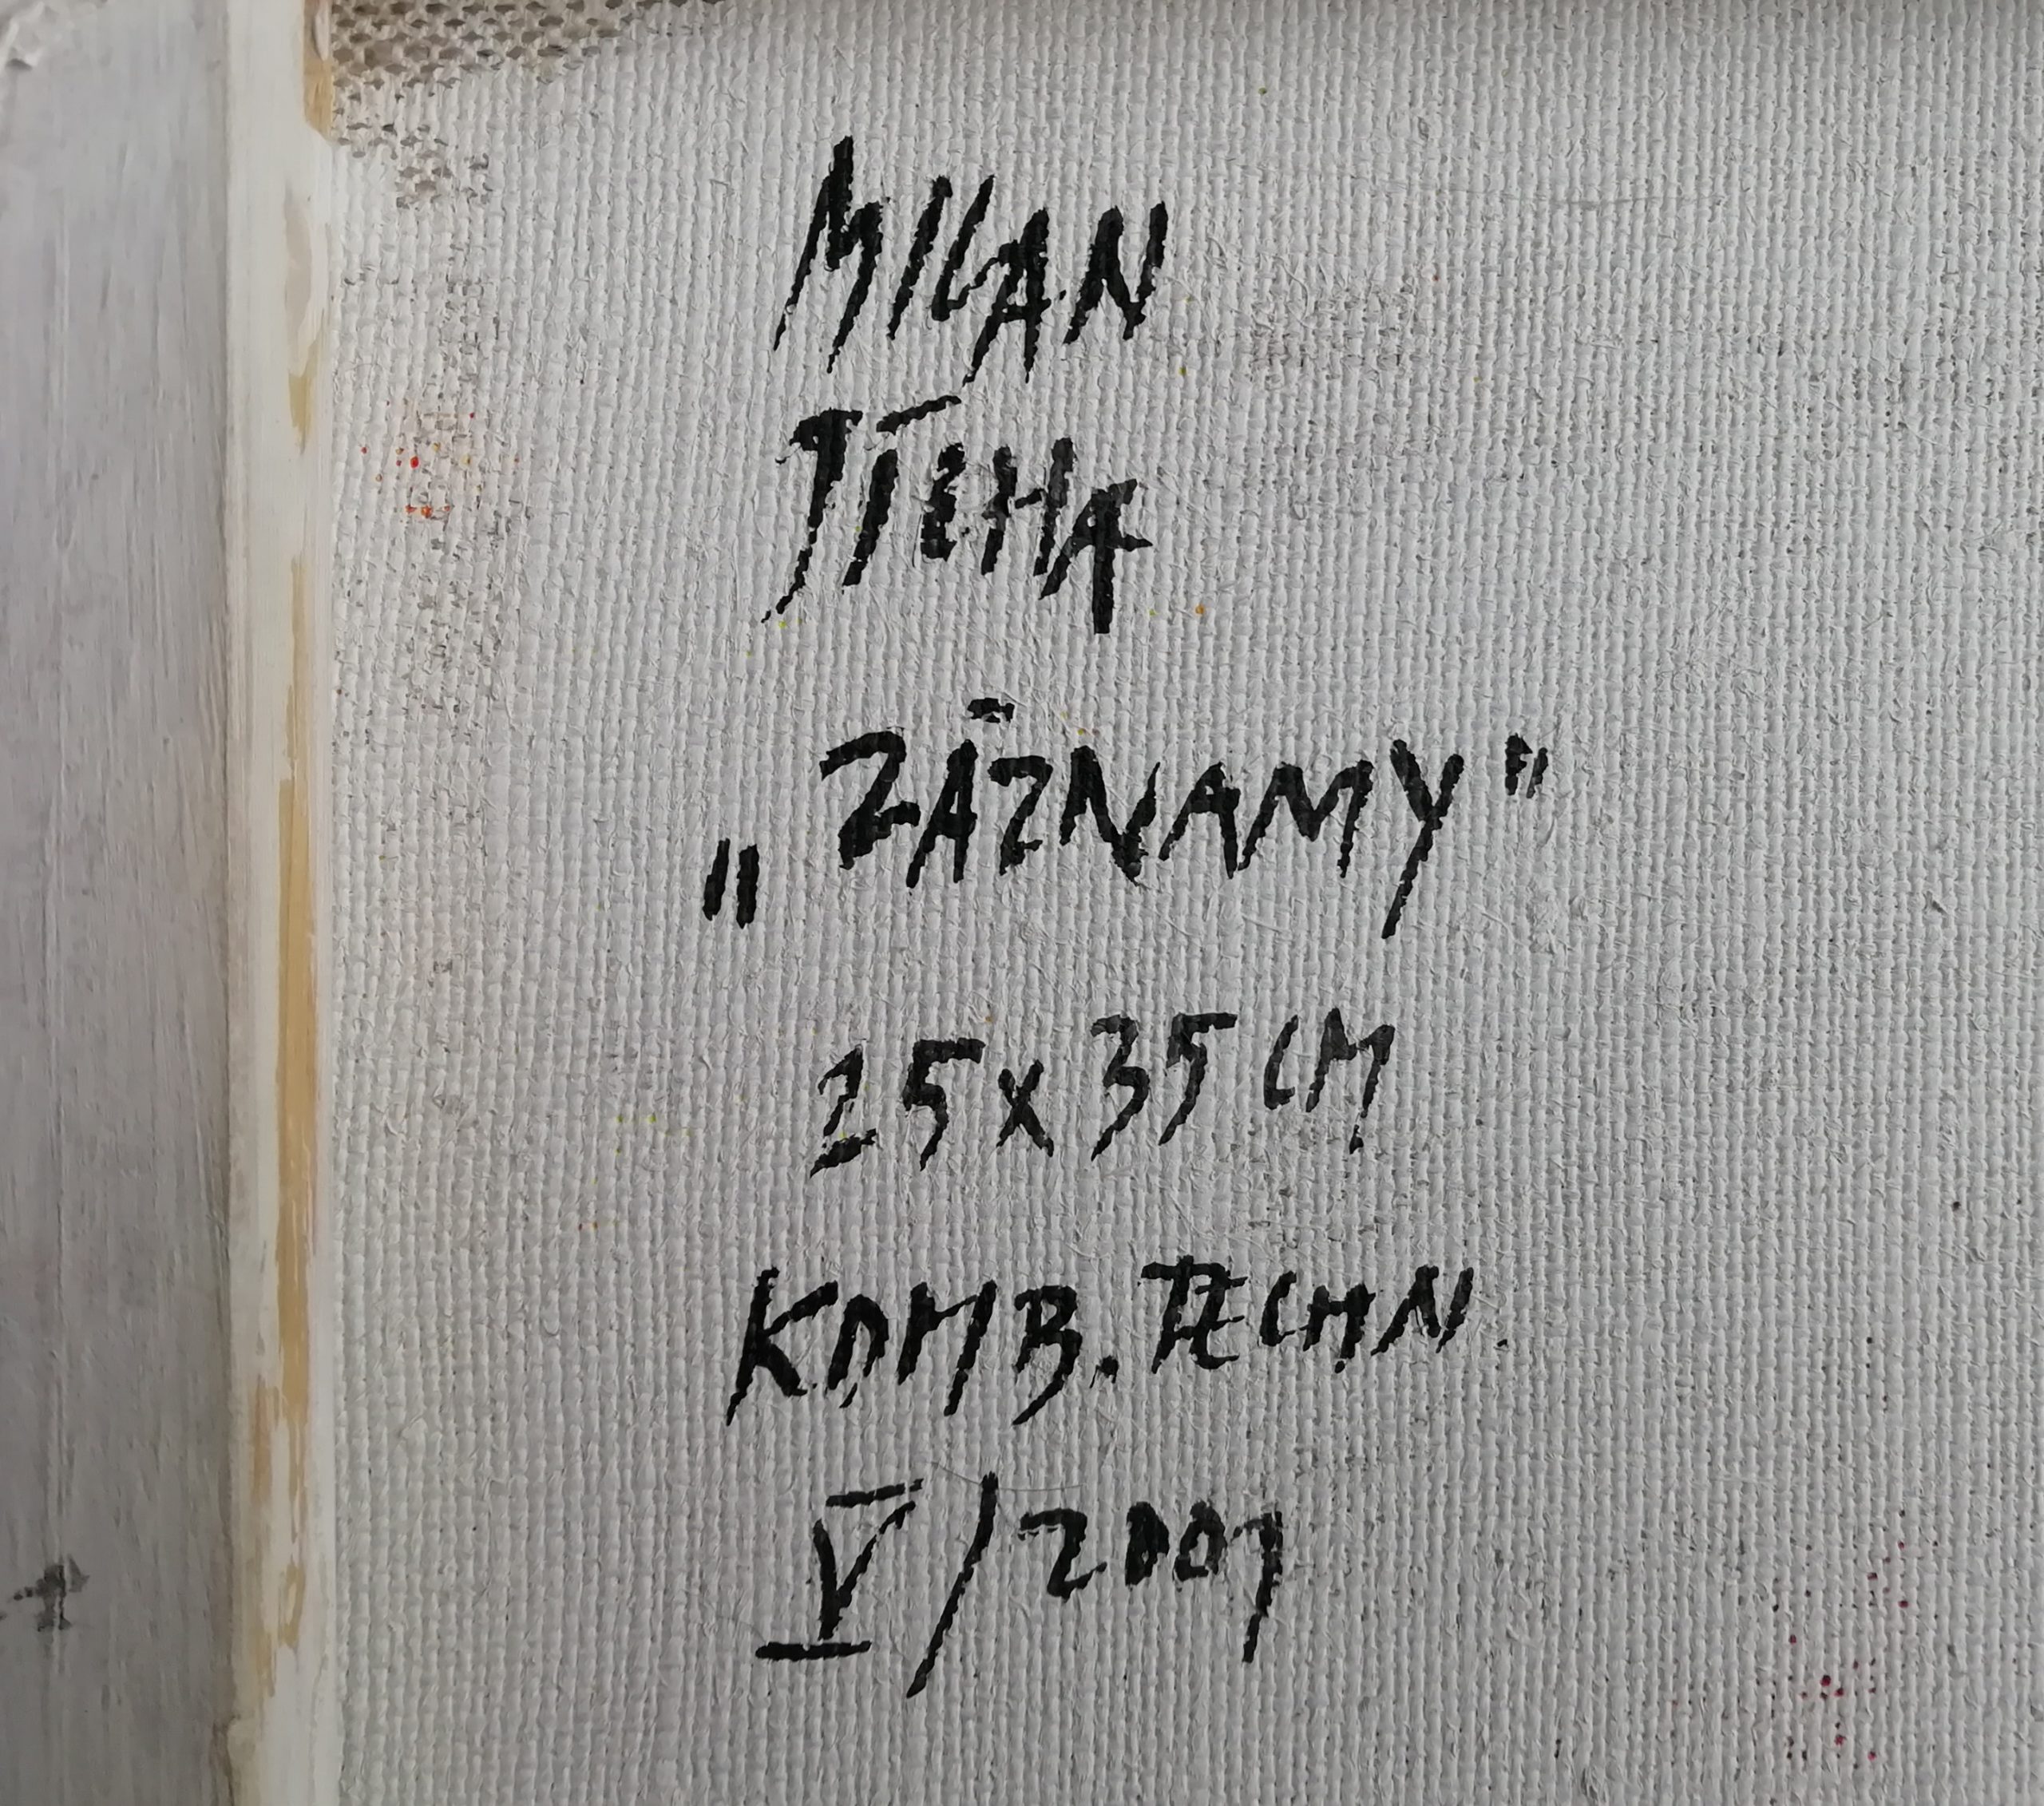 MILAN
TÍCHA
„ZÁZNAMY"
25x35 CM
KOMB. TECHN.
V/2007